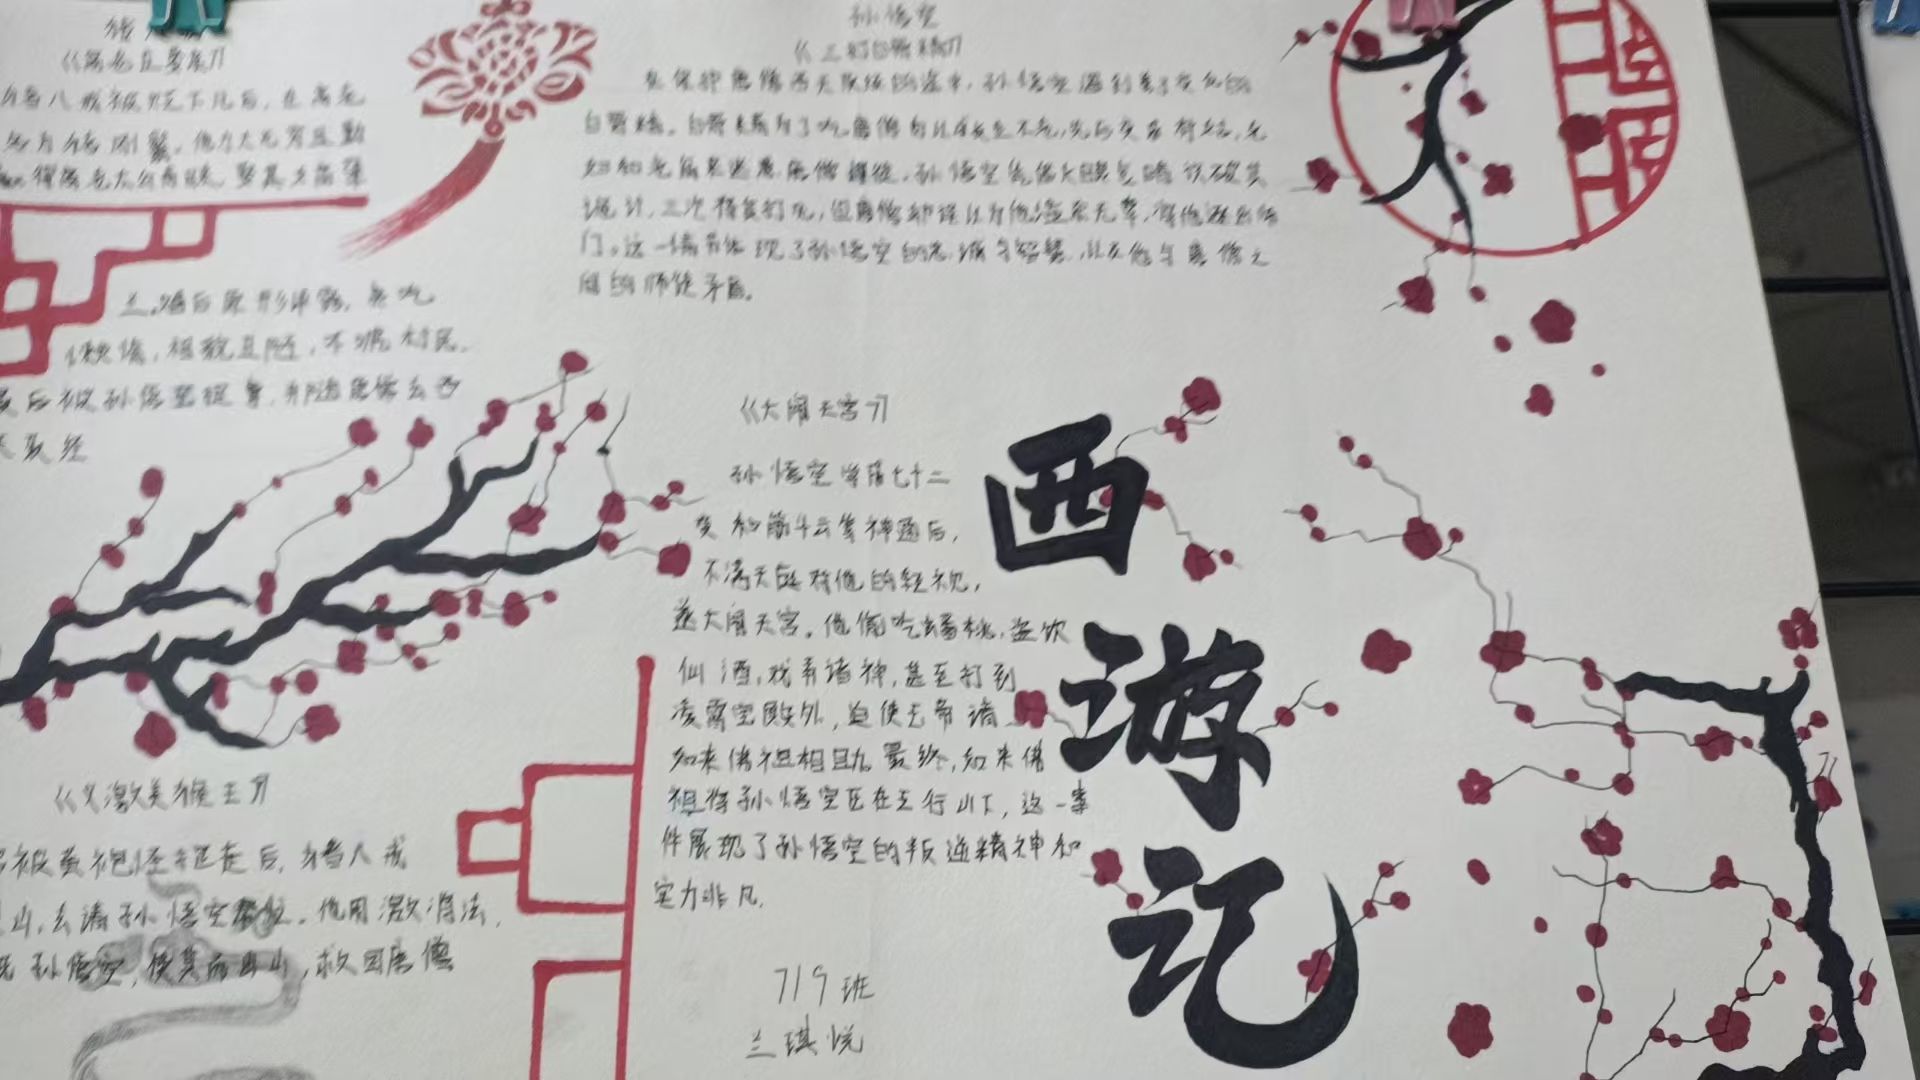 《高老庄娶亲》
猪八戒被贬下凡后，在高老
名为猪刚鬣，他力大无穷且勤
得高老太公青睐，娶其女高翠
兰。婚后原形毕露，能吃
懒惰，相貌丑陋，不
最后被孙悟空捉拿，并随唐僧去西
天取经
孙悟空
《三打白骨精》
在保护唐僧西天取经的途中，孙悟空遇到善于变化的
白骨精。白骨精为了吃唐僧肉以求长生不老，先后变
孙悟空凭借火眼金睛识破其
诡计，三次将其打死，但唐僧却误认为他滥杀无辜，将他逐出师
门。这一情节体现了孙悟空的忠诚与智慧，以及他与唐僧之
间的师徒矛盾。
《大闹天宫》
孙悟空学得七十二
变和筋斗云等神通后，
不满天庭对他的轻视，
遂大闹天宫。他偷吃蟠桃，盗饮
仙酒，戏弄诸神，甚至打到
凌霄宝殿外，迫使天帝请
如来佛祖相助。最终，如来佛
祖将孙悟空压在五行山下，这一事
件展现了孙悟空的叛逆精神和
实力非凡.
《义激美猴王》
被黄袍怪捉走后，猪八戒
山，去请孙悟空
他用激将法，
孙悟空，使其而出山，救回唐僧
西
游
记
719班
兰琪悦